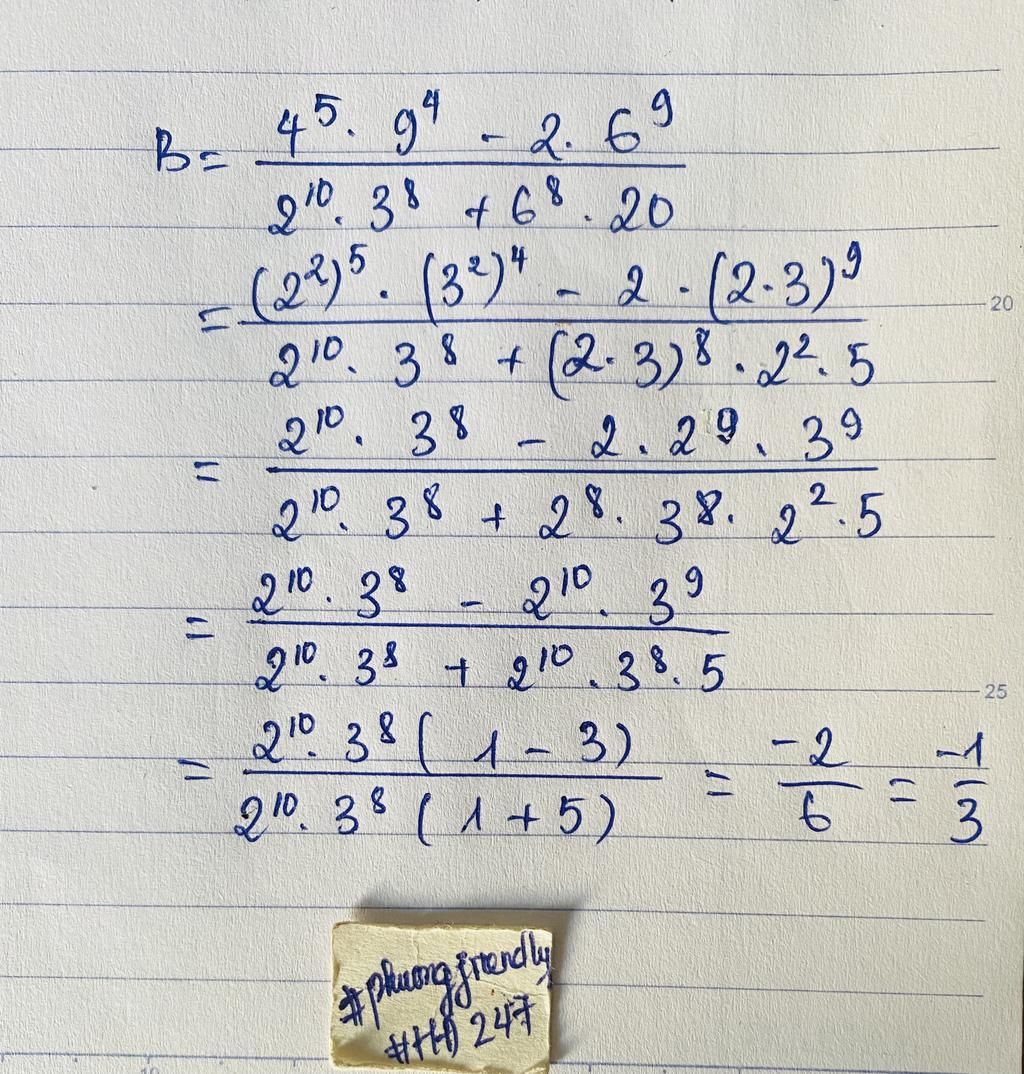 B = (4⁵ . 9⁴ - 2 . 6⁹) / (2¹⁰ . 3⁸ + 6⁸ . 20)
= ((2²)⁵ . (3²)⁴ - 2 . (2.3)⁹) / (2¹⁰ . 3⁸ + (2.3)⁸ . 2² . 5)
= (2¹⁰ . 3⁸ - 2 . 2⁹ . 3⁹) / (2¹⁰ . 3⁸ + 2⁸ . 3⁸ . 2² . 5)
= (2¹⁰ . 3⁸ - 2¹⁰ . 3⁹) / (2¹⁰ . 3⁸ + 2¹⁰ . 3⁸ . 5)
= (2¹⁰ . 3⁸ (1 - 3)) / (2¹⁰ . 3⁸ (1 + 5)) = -2/6 = -1/3
20
25
#phuongfriendly
247